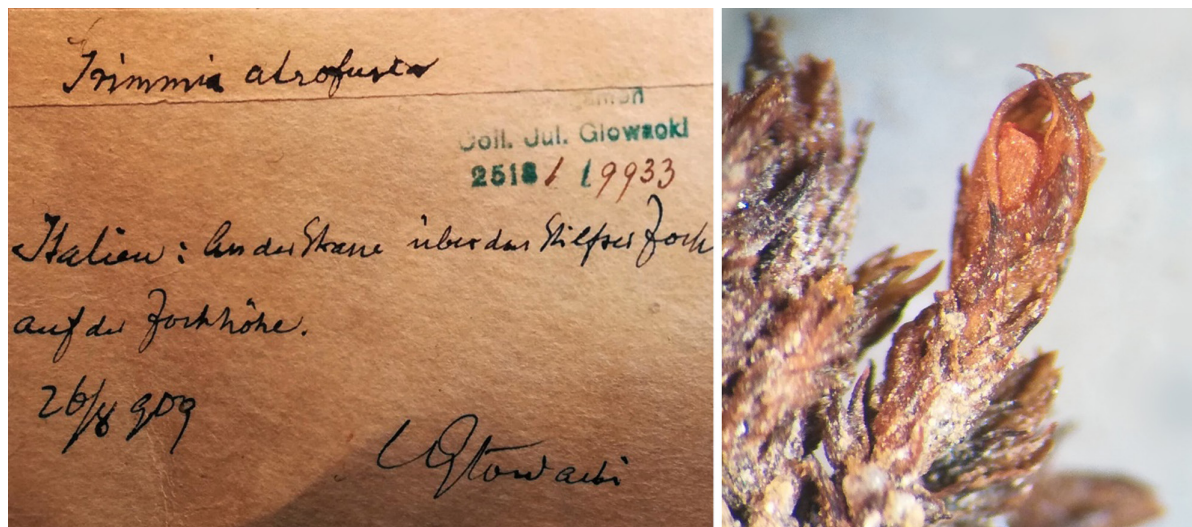 Grimmia atrofusca
Coll. Jul. Glowacki
2518 / 19933
Italien: An der Strasse über das Stilfser Joch
auf der Jochhöhe.
26/8 909
Głowacki